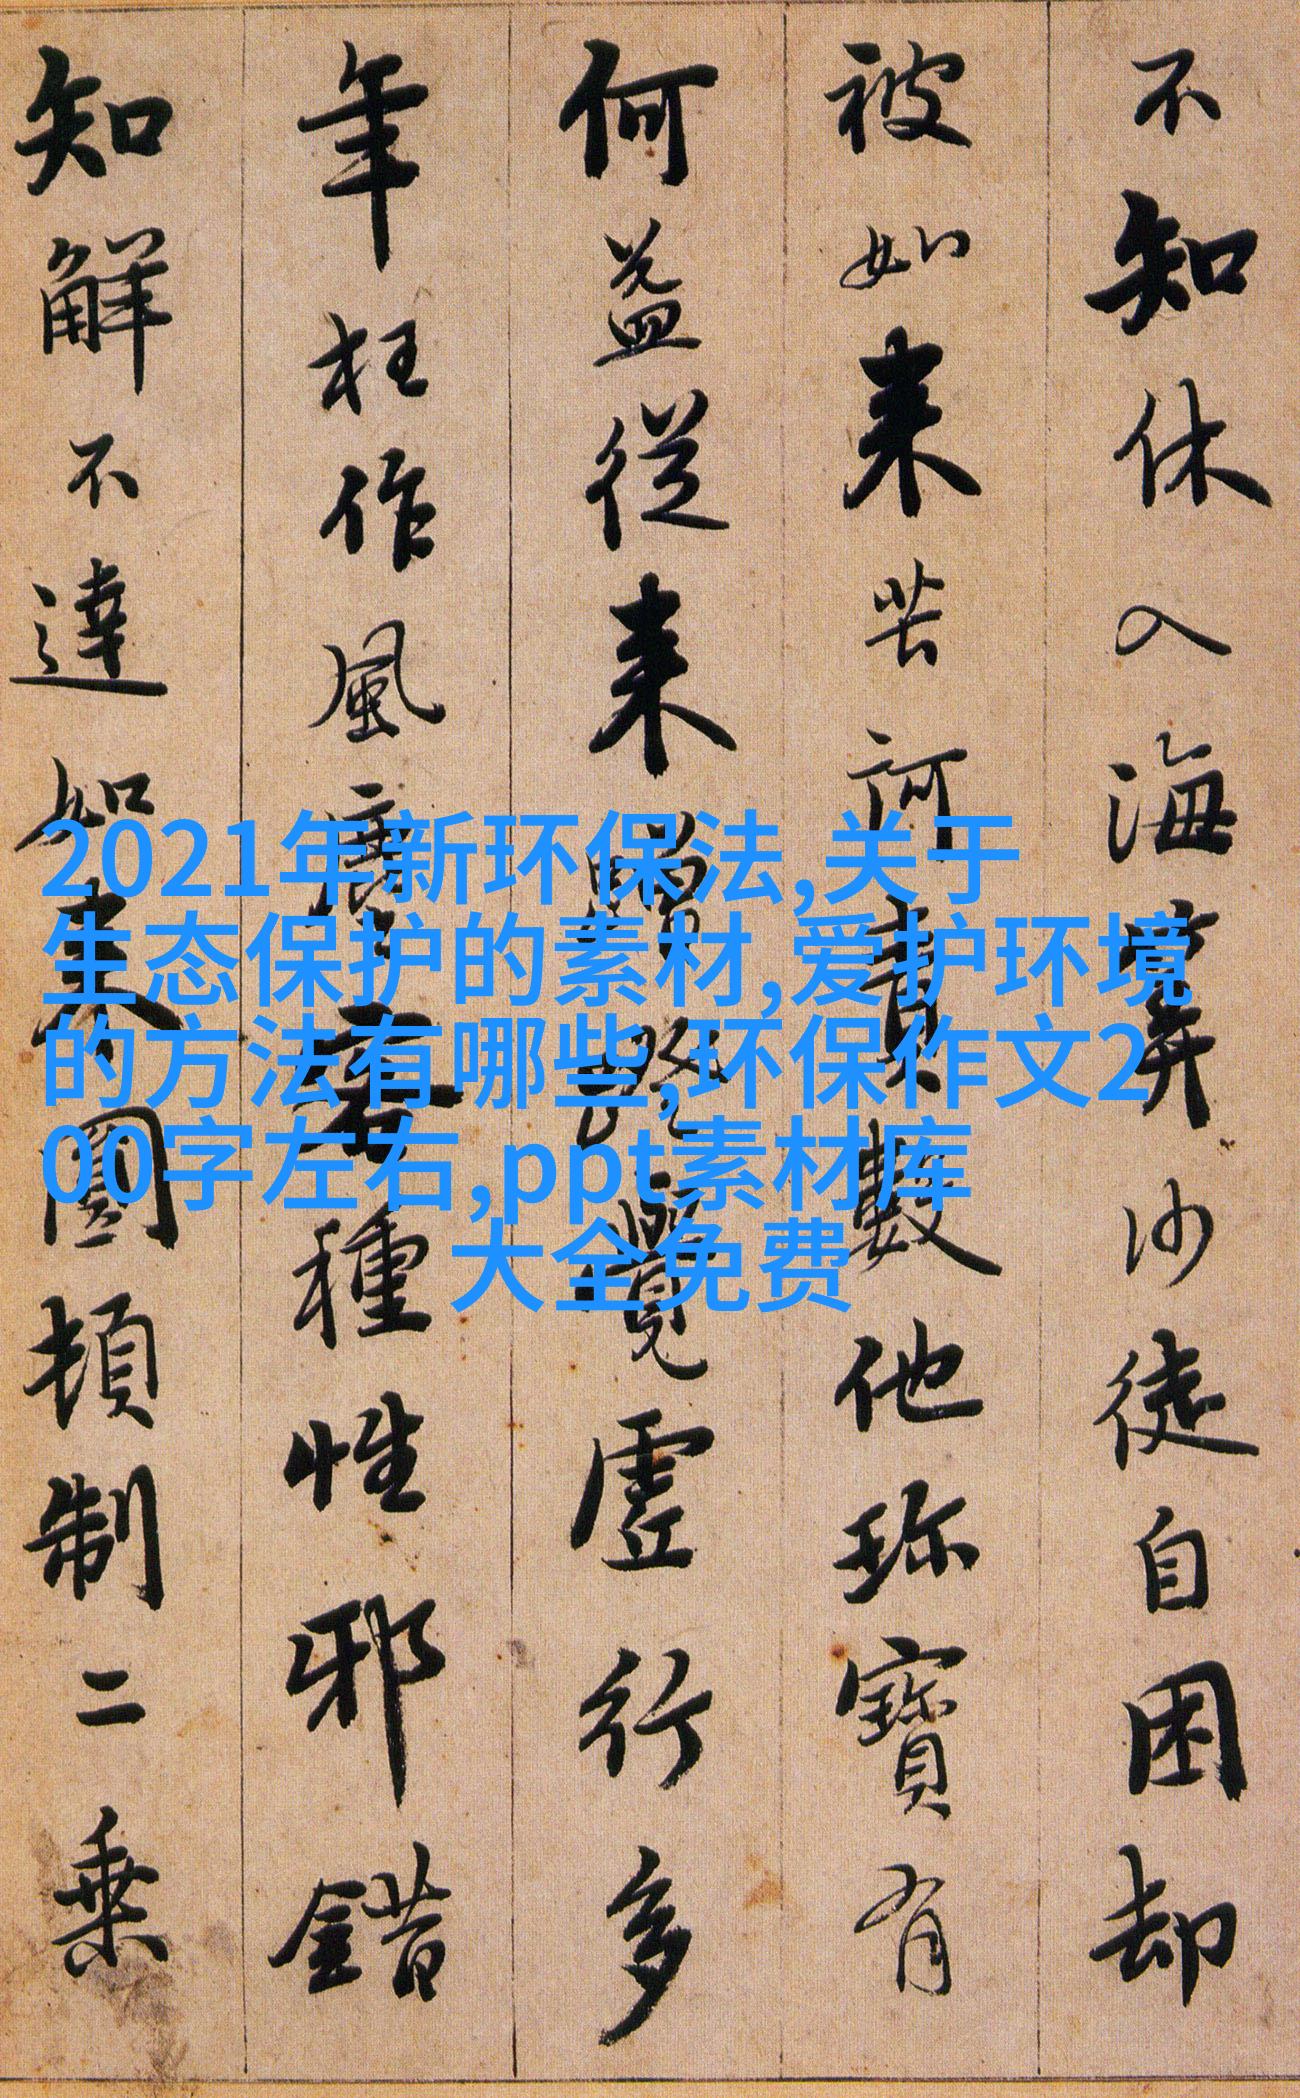 不知休入海筭沙徒自困却
被如来苦訶責數他珎寶有
何益從来蹭蹬覺虛行多
年枉作風塵客種性邪錯
知解不達如来圓頓制二乗
2021年新环保法,关于
生态保护的素材,爱护环境
的方法有哪些,环保作文2
00字左右,ppt素材库
大全免费